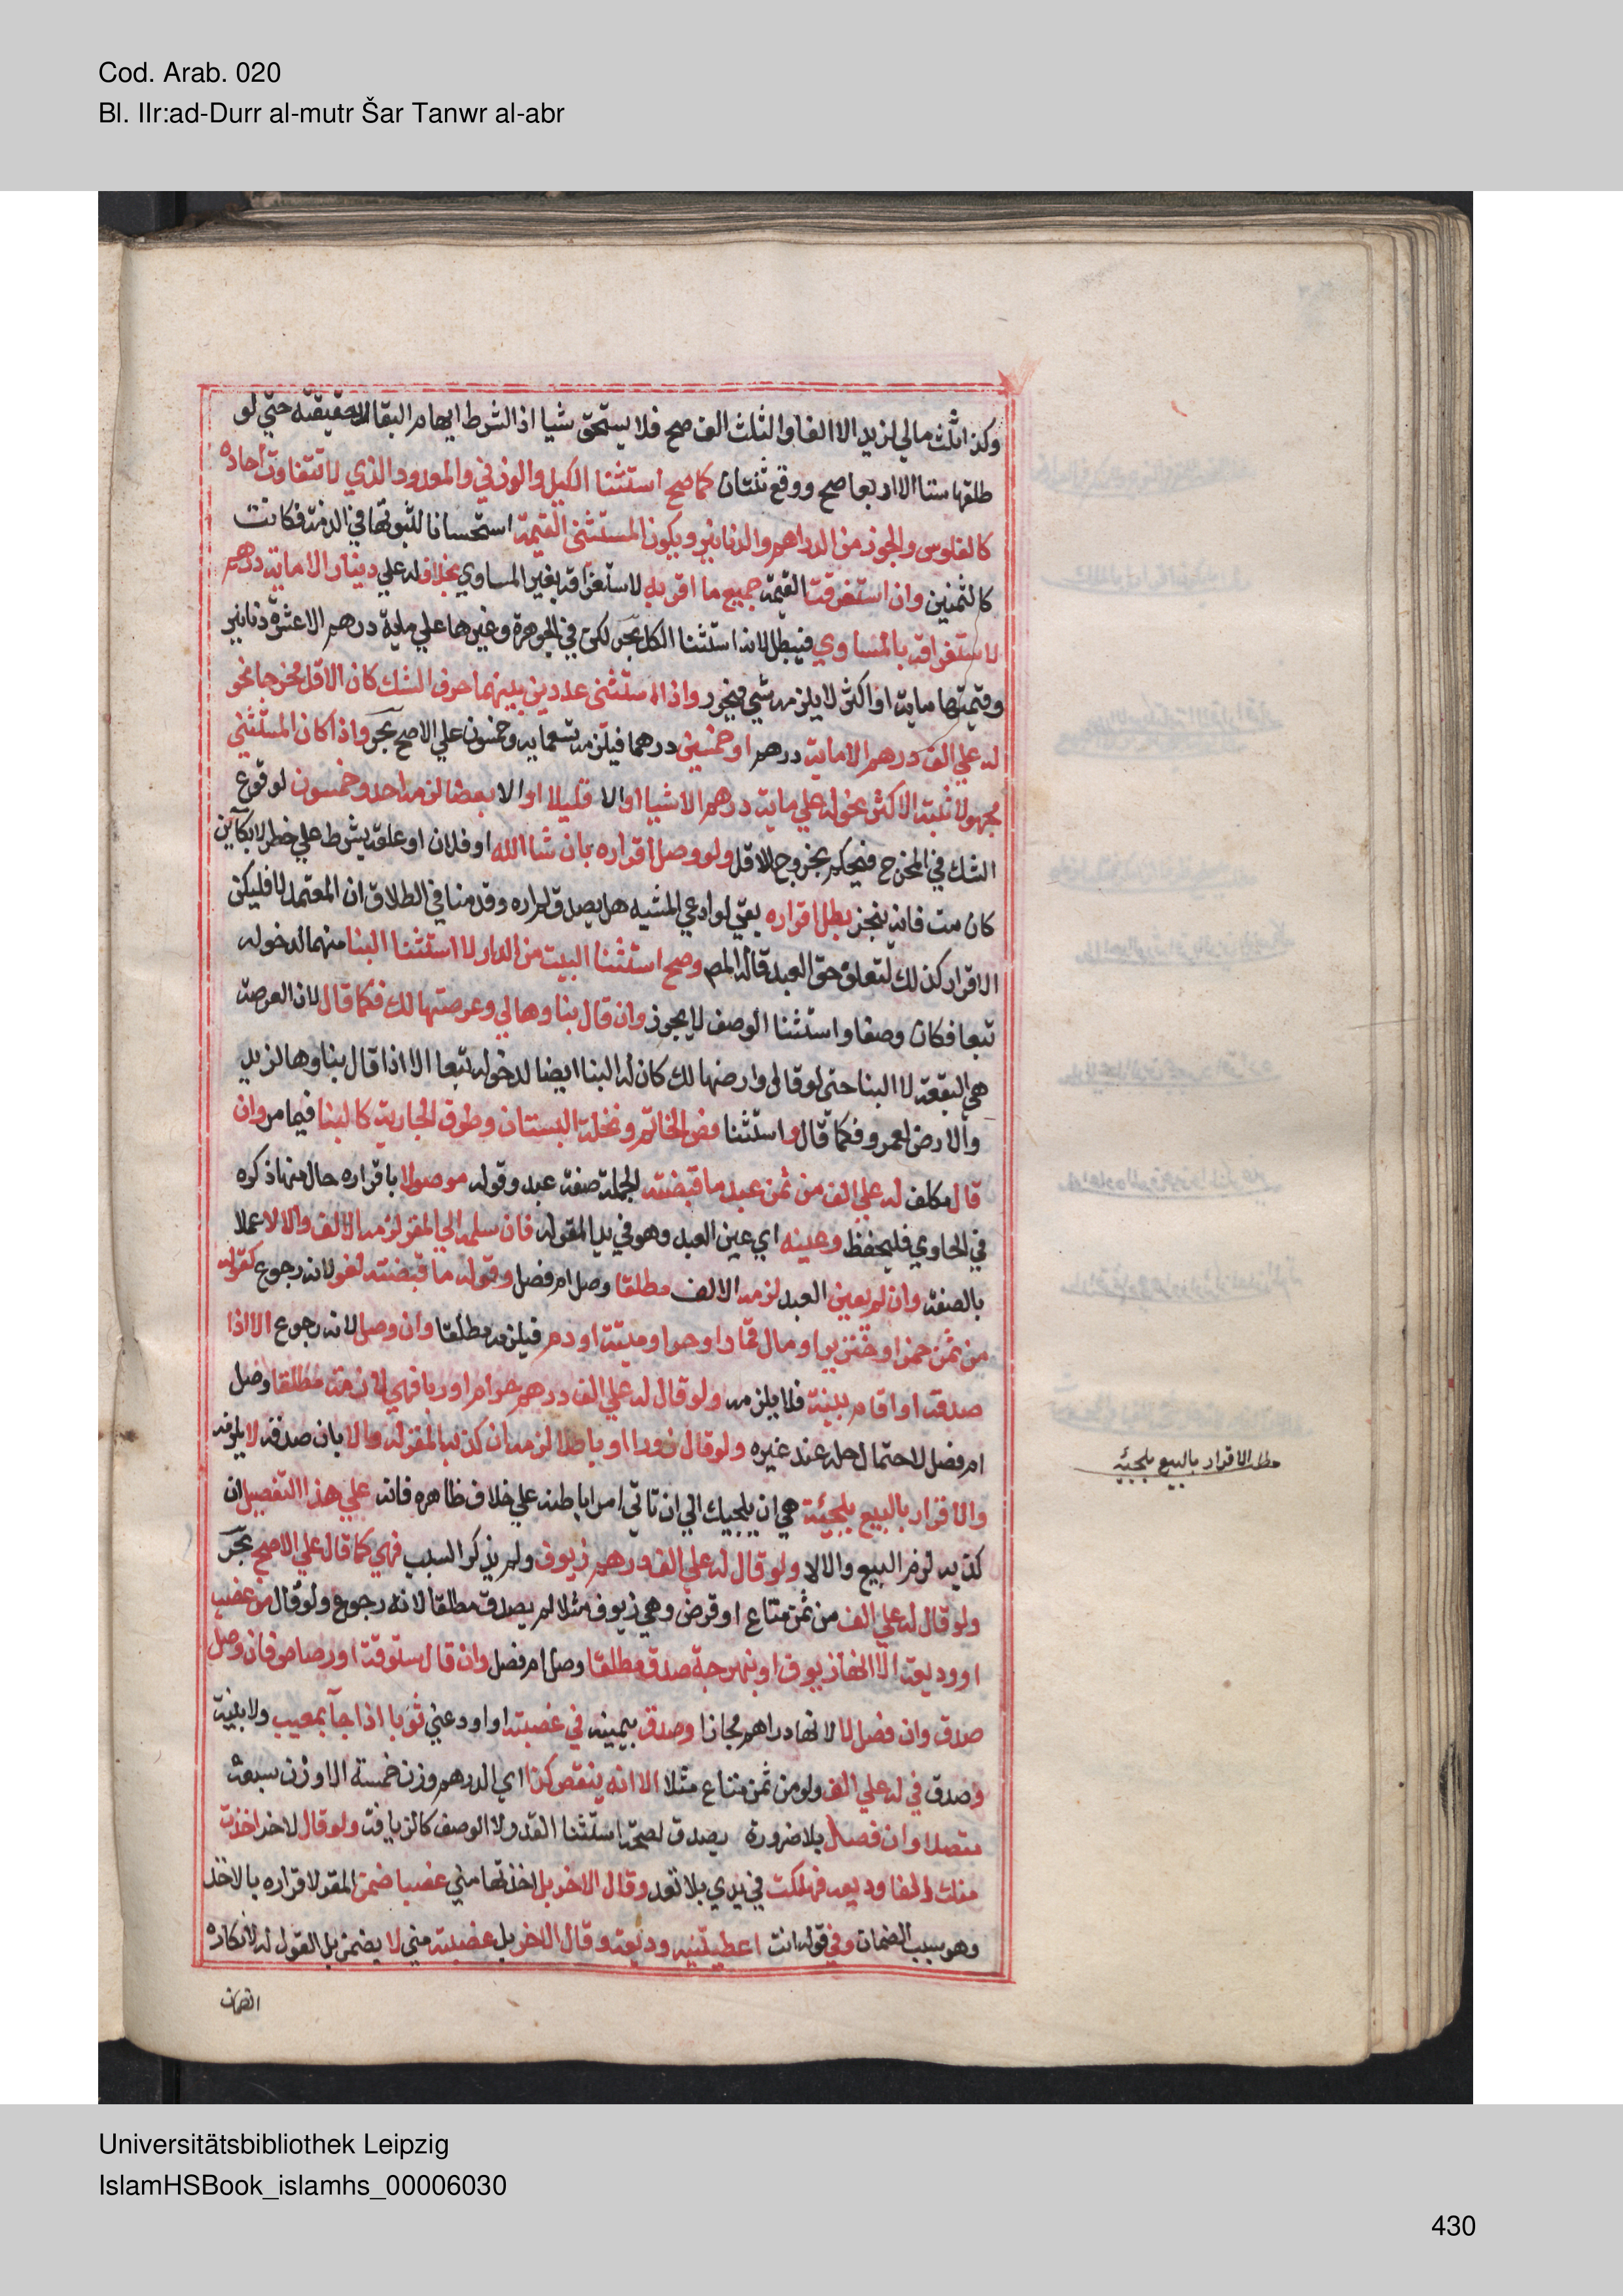 Cod. Arab. 020
Bl. IIr:ad-Durr al-mutr Šar Tanwr al-abr
وكذا ثلث مالي لزيد الا الفا والثلث الف صح فلا يستحق شيا اذ الشرط ايهام البقا لا حقيقته حتي لو
طلقها ستا الا اربعا صح ووقع ثنتان كما صح استثنا الكيلي والوزني والمعدود الذي لا تتفاوت احاده
كالفلوس والجوز من الدراهم والدنانير ويكون المستثني القيمة استحسانا لثبوتها في الذمة فكانت
كالثمنين وان استغرقت القيمة جميع ما اقر به لاستغراقه بغير المساوي بخلاف له علي دينار الا ماية درهم
لاستغراقه بالمساوي فيبطل لانه استثنا الكل بحر لكن في الجوهرة وغيرها علي ماية درهم الا عشرة دنانير
وقيمتها ماية او اكثر لا يلزمه شي فيحرر واذا استثني عددين بينهما حرف الشك كان الاقل مخرجا نحو
له علي الف درهم الا ماية درهم او خمسين درهما فيلزمه تسعماية وخمسون علي الاصح بحر واذا كان المستثني
مجهولا ثبت الاكثر نحو له علي ماية درهم الا شيا او الا قليلا او الا بعضا لزمه احد وخمسون لوقوع
الشك في المخرج فيحكم بخروج الاقل ولو وصل اقراره بان شا الله او فلان او علقه بشرط علي خطر لا بكآين
كان مت فانه ينجز بطل اقراره بقي لو ادعي المشيه هل يصدق لم اره وقدمنا في الطلاق ان المعتمد لا فليكن
الاقرار كذلك لتعلق حق العبد قاله المص وصح استثنا البيت من الدار لا استثنا البنا منهما لدخوله
تبعا فكان وصفا واستثنا الوصف لا يجوز وان قال بناوها لي وعرصتها لك فكما قال لان العرصة
هي البقعة لا البنا حتي لو قال وارضها لك كان له البنا ايضا لدخوله تبعا الا اذا قال بناوها لزيد
والارض لعمرو فكما قال واستثنا فص الخاتم ونخلة البستان وطوق الجارية كالبنا فيما مر وان
قال مكلف له علي الف من ثمن عبد ما قبضته الجملة صفة عبد وقوله موصولا باقراره حال منها ذكره
في الحاوي فليحفظ وعينه اي عين العبد وهو في يد المقر له فان سلمه الي المقر لزمه الالف والا لا عملا
بالصفة وان لم يعين العبد لزمه الالف مطلقا وصل ام فصل وقوله ما قبضته لغو لانه رجوع كقوله
من ثمن خمر او خنزير او مال قمار او حر او ميتة او دم فيلزمه مطلقا وان وصل لانه رجوع الا اذا
صدقه او اقام بينة فلا يلزمه ولو قال له علي الف درهم حرام او ربا فهي لازمة مطلقا وصل
ام فصل لاحتمال حله عند غيره ولو قال زورا او باطلا لزمه ان كذبه المقر له والا بان صدقه لا يلزمه
والاقرار بالبيع تلجئة هي ان يلجيك الي ان تاتي امرا باطنه علي خلاف ظاهره فانه علي هذا التفصيل ان
كذبه لزم البيع والا لا ولو قال له علي الف درهم زيوف ولم يذكر السبب فهي كما قال علي الاصح بحر
ولو قال له علي الف من ثمن متاع او قرض وهي زيوف مثلا لم يصدق مطلقا لانه رجوع ولو قال من غصب
او وديعة الا انها زيوف او نبهرجة صدق مطلقا وصل ام فصل وان قال ستوقة او رصاص فان وصل
صدق وان فصل لا لانها دراهم مجازا وصدق بيمينه في غصبته او اودعني ثوبا اذا جآ بمعيب ولا بينة
وصدق في له علي الف ولو من ثمن متاع مثلا الا انه ينقص كذا اي الدرهم وزن خمسة الا وزن سبعة
متصلا وان فصل بلا ضرورة يصدق لصحة استثنا القدر لا الوصف كالزيافة ولو قال لاخر اخذت
منك الفا وديعه فهلكت في يدي بلا تعد وقال الاخر بل اخذتها مني غصبا ضمن المقر لاقراره بالاخذ
وهو سبب الضمان وفي قوله انت اعطيتنيه وديعة وقال الاخر بل غصبته مني لا يضمن بل القول له لانكاره
الضمان
مطلب الاقرار بالبيع تلجئة
Universitätsbibliothek Leipzig
IslamHSBook_islamhs_00006030
430